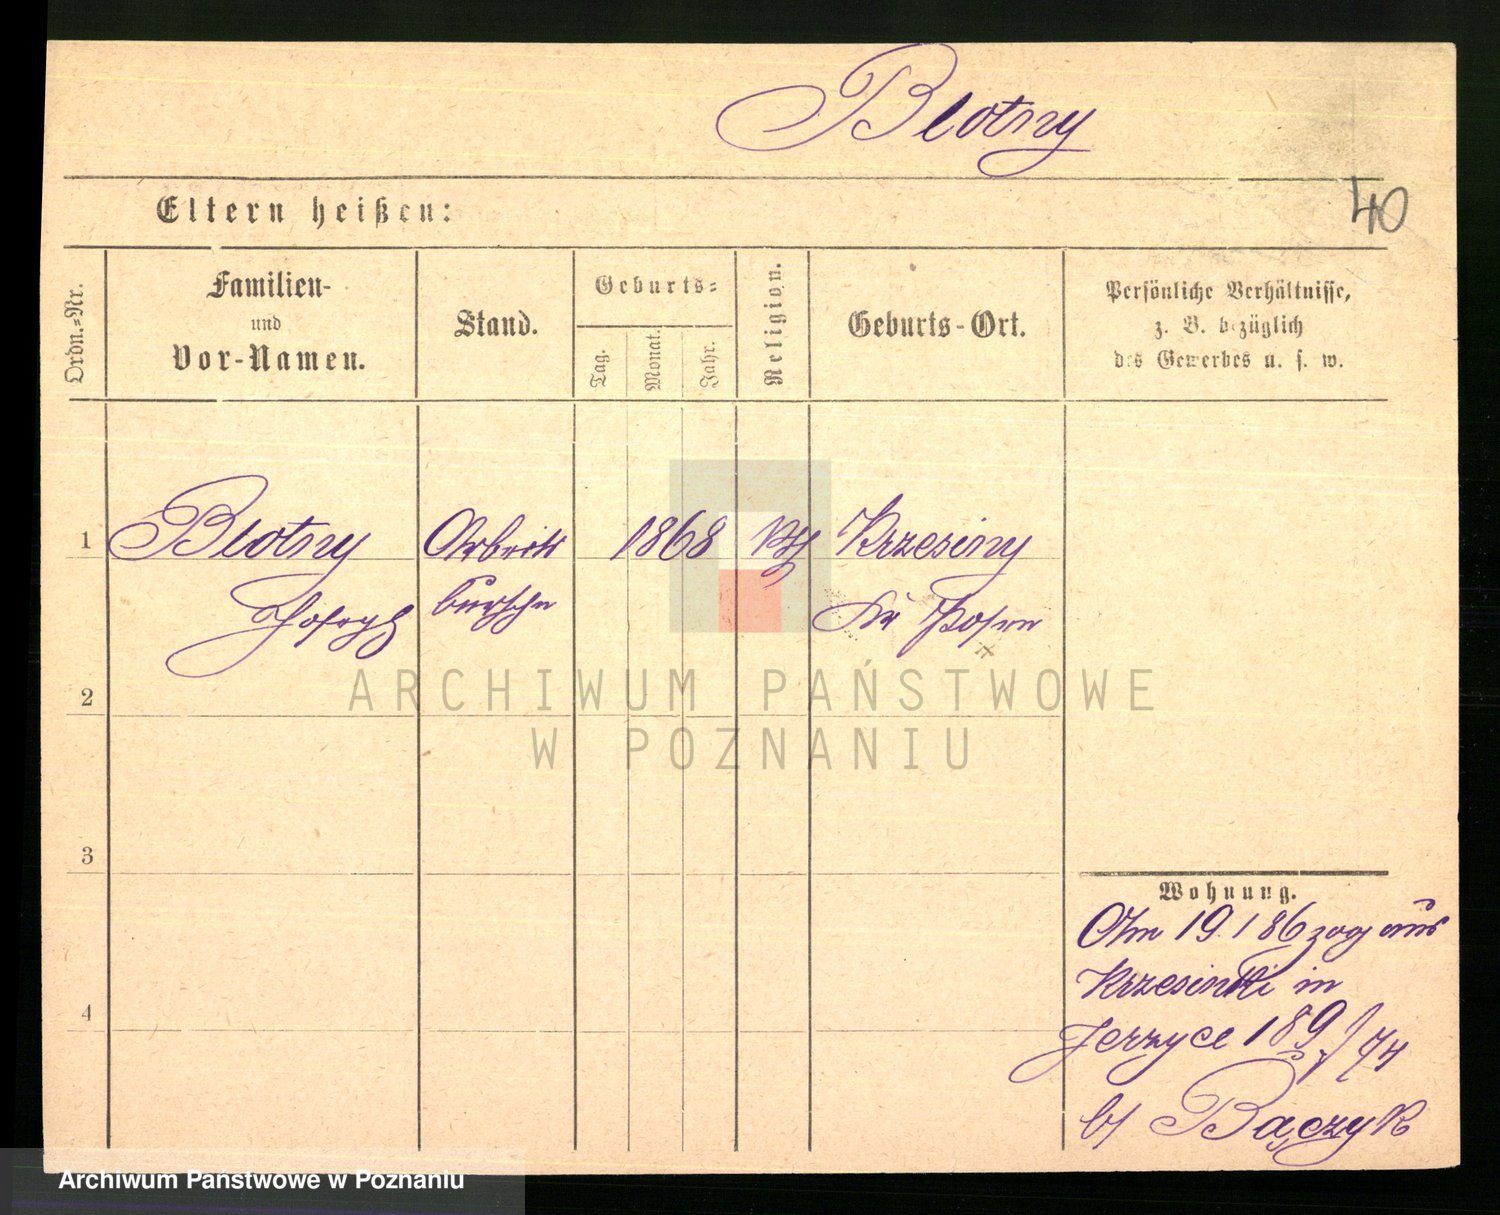 Blotny
40
Eltern heißen:
Ordn.-Nr.
Familien-
und
Vor-Namen.
Stand.
Geburts-
Tag.
Monat.
Jahr.
Religion.
Geburts-Ort.
Persönliche Verhältnisse,
z. B. bezüglich
des Gewerbes u. s. w.
1 Blotny Arbeits 1868 Kth Krzesiny
Joseph bursche Kr Posen
2
3
4
Wohnung.
Am 19.1 86 zog aus
in
Jerzyce 189
b/ Bączyk
ARCHIWUM PAŃSTWOWE
W POZNANIU
Archiwum Państwowe w Poznaniu